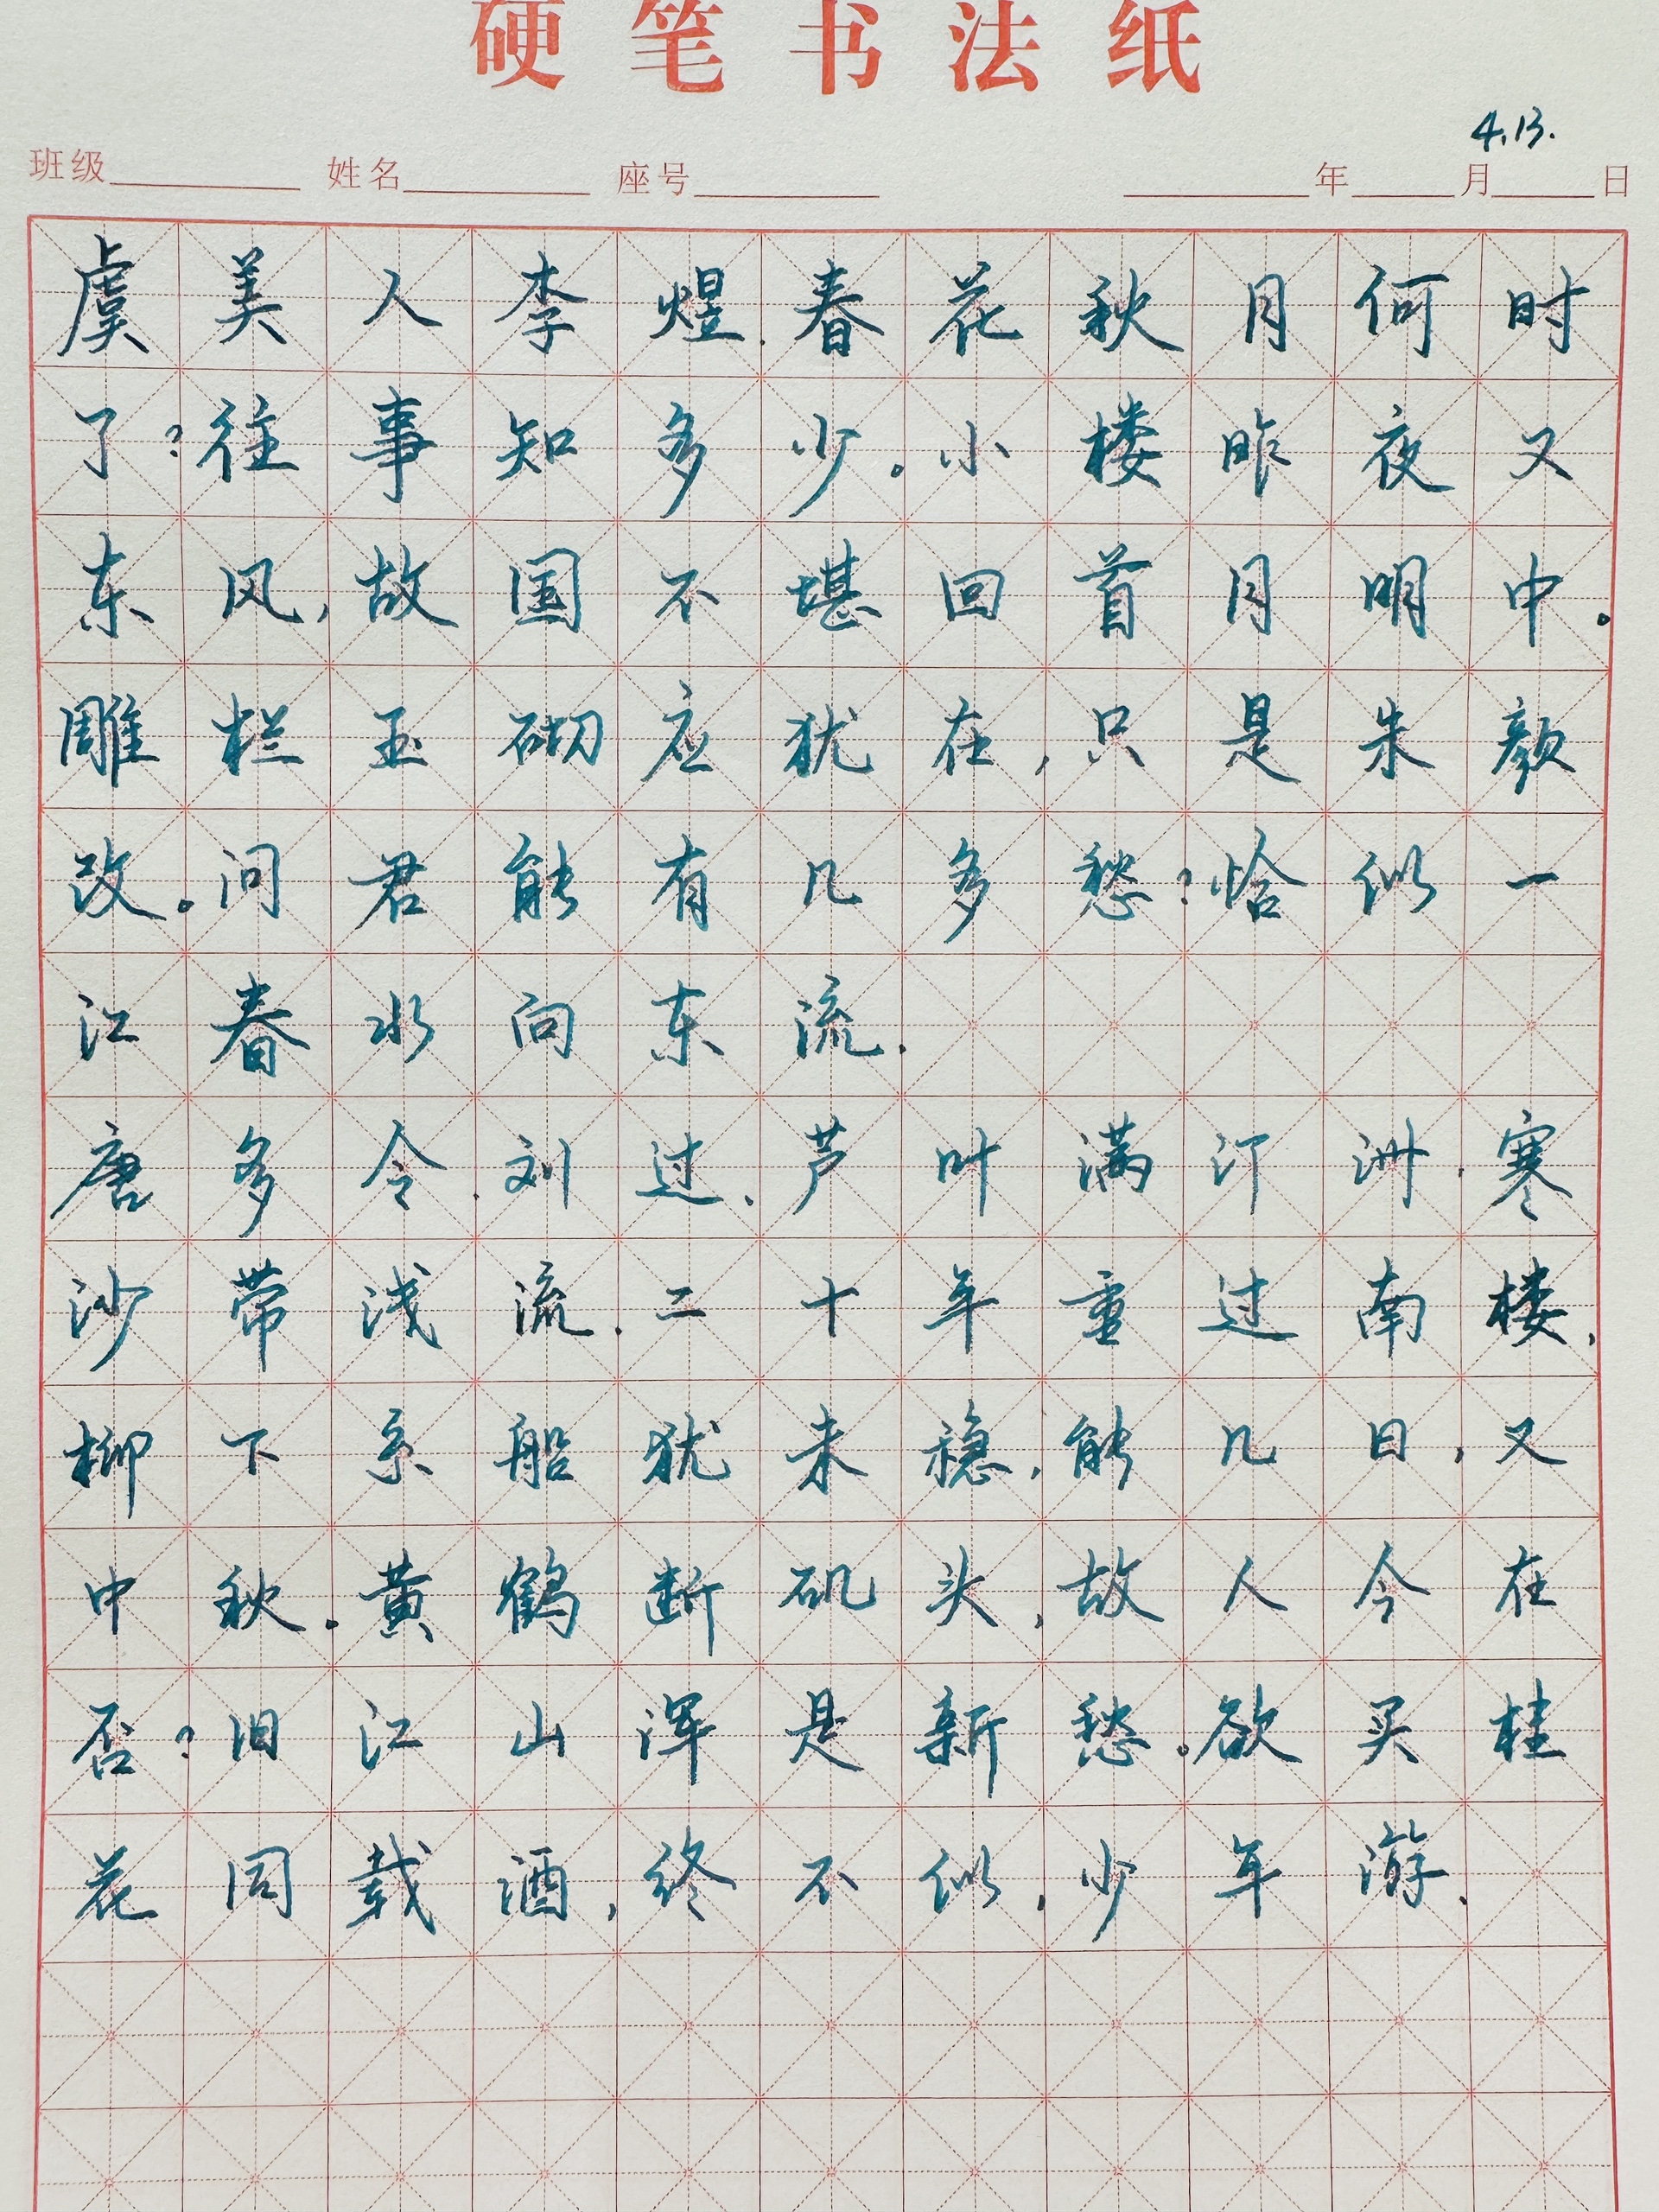 硬笔书法纸
4.13.
班级 姓名 座号 年 月 日
虞美人李煜.春花秋月何时
了?往事知多少。小楼昨夜又
东风,故国不堪回首月明中。
雕栏玉砌应犹在,只是朱颜
改。问君能有几多愁?恰似一
江春水向东流.
唐多令.刘过.芦叶满汀洲.寒
沙带浅流.二十年重过南楼,
柳下系船犹未稳,能几日,又
中秋.黄鹤断矶头,故人今在
否?旧江山浑是新愁。欲买桂
花同载酒,终不似,少年游.